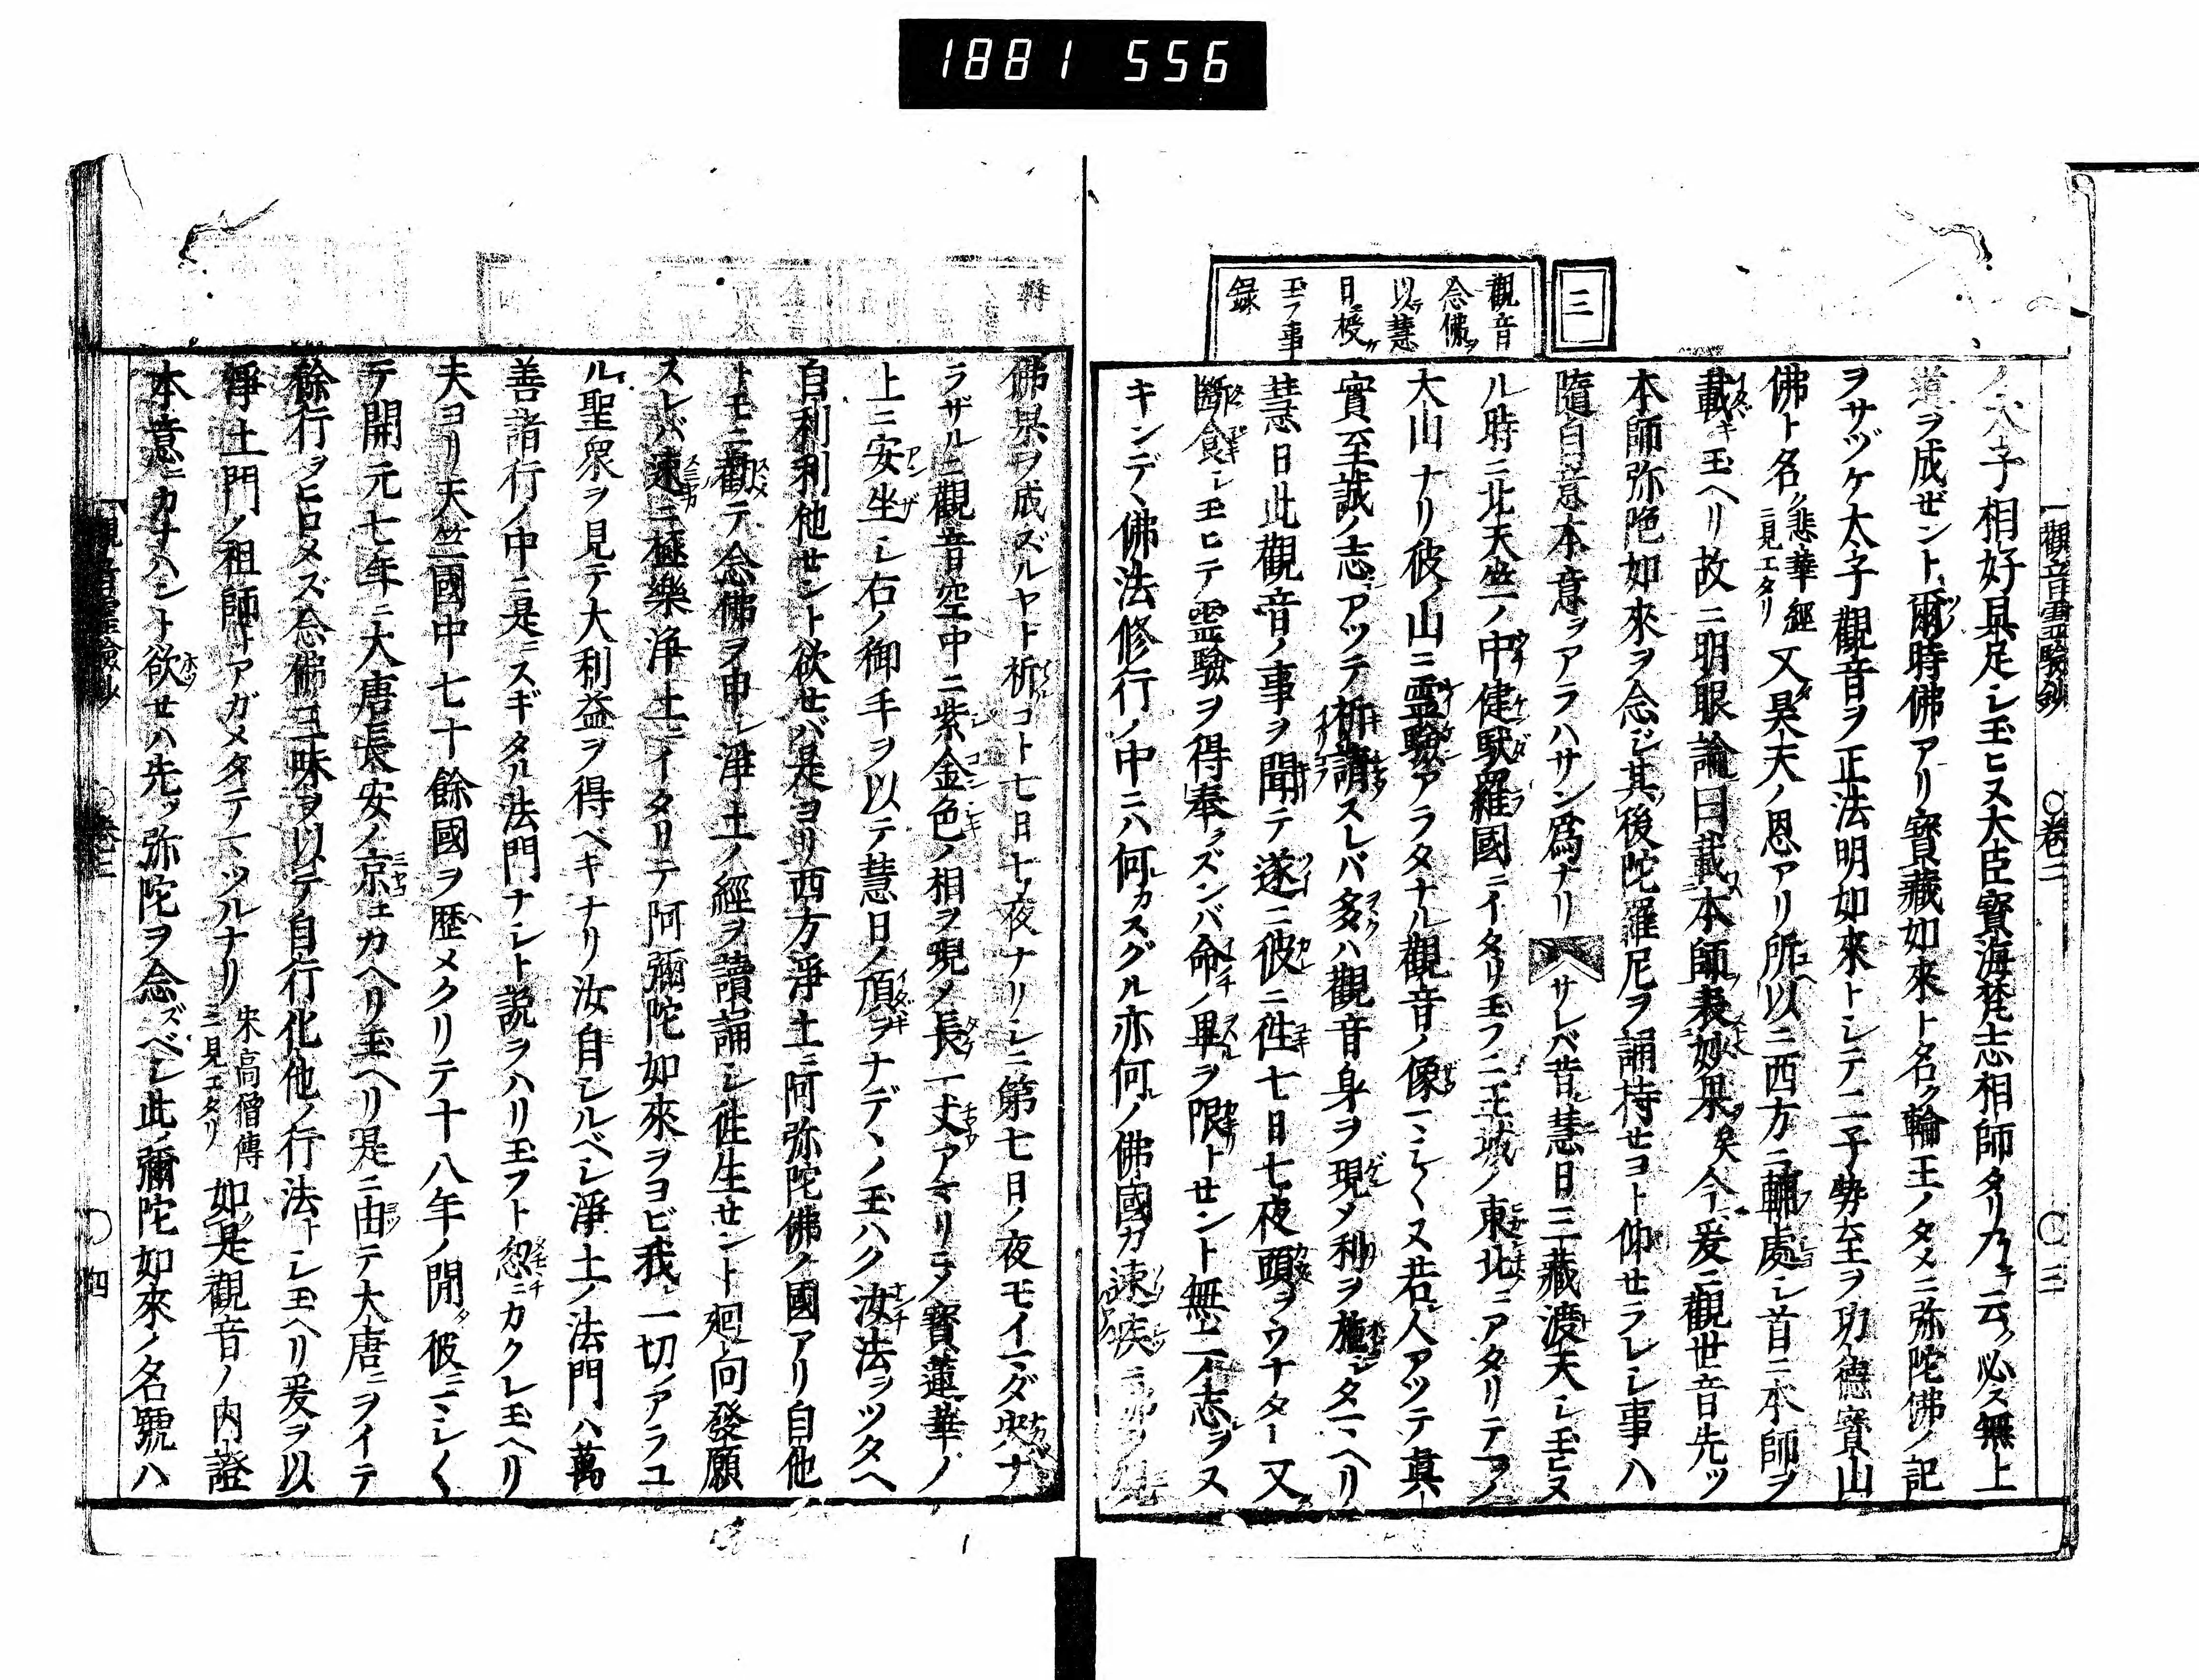 1881 556
觀音靈驗鈔 ○卷二 ○三
三
觀音
念佛ヲ
以テ慧
日ニ授ケ
玉フ事
録
ノ太子相好具足シ玉ヒヌ大臣寳海梵志相師タリ云ク必ス無上
道ヲ成ゼント爾時佛アリ寳藏如來ト名ク輪王ノタメニ弥陀佛ノ記
ヲサヅケ太子觀音ヲ正法明如來トシテ二子勢至ヲ功德寳山
佛ト名ク悲華經ニ見エタリ又昊天ノ恩アリ所以ニ西方ニ輔處シ首ニ本師ヲ
載キ玉ヘリ故ニ明眼論曰載本師表妙果矣今爰ニ觀世音先ツ
本師弥陀如來ヲ念ジ其後陀羅尼ヲ誦持セヨト仰セラレシ事ハ
隨自意本意ヲアラハサン爲ナリ サレバ昔慧日三藏渡天シ玉ヒヌ
ル時ニ北天竺ノ中健馱羅國ニイタリ玉フニ王城ノ東北ニアタリテ一ノ
大山ナリ彼ノ山ニ靈驗アラタナル觀音ノ像マシマシヌ若人アツテ真
實至誠ノ志アツテ祈請スレバ多ハ觀音身ヲ現メ利ヲ施シタマヘリ
慧日此觀音ノ事ヲ聞テ遂ニ彼ニ徃七日七夜頭ヲウナダレ又
斷食シ玉ヒテ靈驗ヲ得奉ラズンバ命ノ畢ヲ限トセント無二ノ志ヲヌ
キンデヽ佛法修行ノ中ニハ何カスグル亦何ノ佛國カ速疾ニ
佛果ヲ成ズルヤト祈コト七日七夜ナリシニ第七日ノ夜モイマダ央ナ
ラザルニ觀音空中ニ紫金色ノ相ヲ現メ長一丈アマリニメ寳蓮華ノ
上ニ安坐シ右ノ御手ヲ以テ慧日ノ頂ヲナデヽノ玉ハク汝法ヲツタヘ
自利利他セント欲セバ是ヨリ西方淨土ニ阿弥陀佛ノ國アリ自他
トモニ勸テ念佛ヲ申シ淨土ノ經ヲ讀誦シ徃生セント廻向發願
スレバ速ニ極樂淨土ニイタリテ阿彌陀如來ヲヨビ我一切ノアラユ
ル聖衆ヲ見テ大利益ヲ得ベキナリ汝自シルベシ淨土ノ法門ハ萬
善諸行ノ中ニ是ニスギタル法門ナシト説ヲハリ玉フト忽ニカクレ玉ヘリ
夫ヨリ天竺國中七十餘國ヲ歴メクリテ十八年ノ閒彼ニマシマシ
テ開元七年ニ大唐長安ノ京エカヘリ玉ヘリ是ニ由テ大唐ニヲイテ
餘行ヲヒロメズ念佛三昧ヲ以テ自行化他ノ行法トシ玉ヘリ爰ヲ以
淨土門ノ祖師トアガメタテマツルナリ宋高僧傳ニ見エタリ如是觀音ノ内證
本意ニカナハント欲セハ先ッ弥陀ヲ念ズベシ此彌陀如來ノ名號ハ
觀音靈驗鈔 ○卷二 ○四